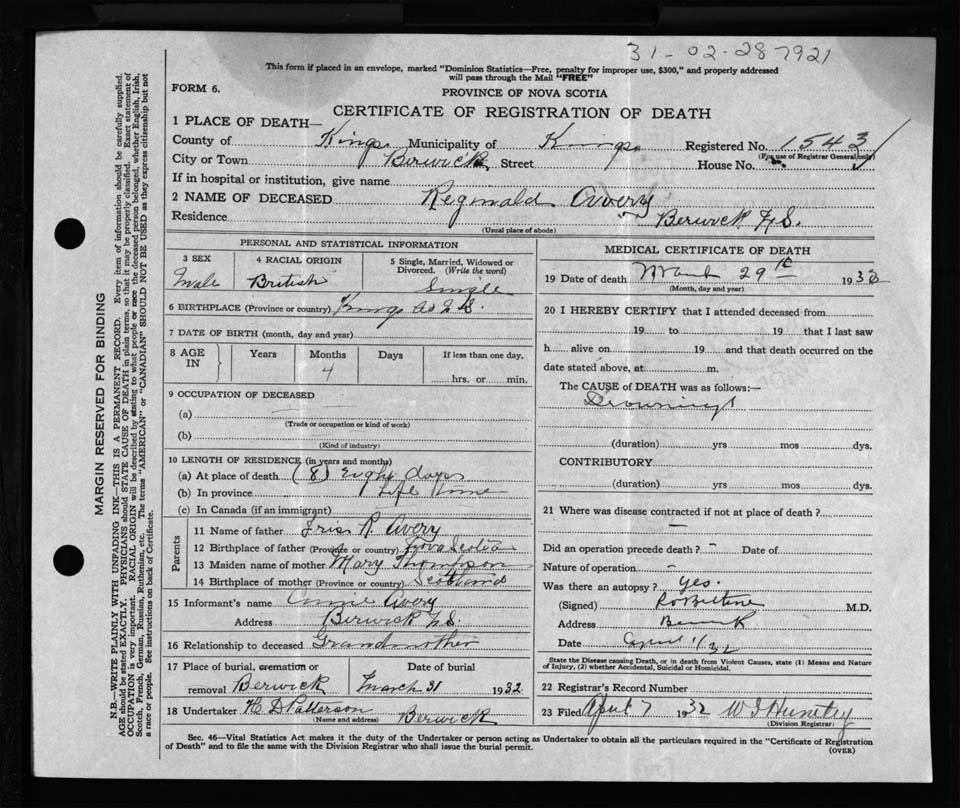 31-02-287921
This form if placed in an envelope, marked "Dominion Statistics—Free, penalty for improper use, $300," and properly addressed
will pass through the Mail "FREE"
FORM 6.
PROVINCE OF NOVA SCOTIA
CERTIFICATE OF REGISTRATION OF DEATH
1 PLACE OF DEATH—
County of Kings Municipality of Kings Registered No. 1543
(For use of Registrar General only)
City or Town Berwick Street House No.
If in hospital or institution, give name
2 NAME OF DECEASED Reginald Avery
Residence Berwick N.S.
(Usual place of abode)
PERSONAL AND STATISTICAL INFORMATION
3 SEX 4 RACIAL ORIGIN 5 Single, Married, Widowed or
Divorced. (Write the word)
Male British Single
6 BIRTHPLACE (Province or country) Kings Co N.S.
7 DATE OF BIRTH (month, day and year)
8 AGE IN Years Months Days If less than one day,
4 hrs. or min.
9 OCCUPATION OF DECEASED
(a)
(Trade or occupation or kind of work)
(b)
(Kind of industry)
10 LENGTH OF RESIDENCE (in years and months)
(a) At place of death (8) Eight days
(b) In province Life time
(c) In Canada (if an immigrant)
Parents
11 Name of father R. Avery
12 Birthplace of father (Province or country) Nova Scotia
13 Maiden name of mother Mary Thompson
14 Birthplace of mother (Province or country) Scotland
15 Informant's name Annie Avery
Address Berwick N.S.
16 Relationship to deceased Grandmother
17 Place of burial, cremation or Date of burial
removal Berwick March 31 1932
18 Undertaker H D Patterson Berwick
(Name and address)
MEDICAL CERTIFICATE OF DEATH
19 Date of death March 29th 1932
(Month, day and year)
20 I HEREBY CERTIFY that I attended deceased from
19 to 19 that I last saw
h alive on 19 and that death occurred on the
date stated above, at m.
The CAUSE of DEATH was as follows:—
Drowning
(duration) yrs mos dys.
CONTRIBUTORY
(duration) yrs mos dys.
21 Where was disease contracted if not at place of death?
—
Did an operation precede death? - Date of
Nature of operation -
Was there an autopsy? Yes.
(Signed) M.D.
Address Berwick
Date April 1/32
State the Disease causing Death, or in death from Violent Causes, state (1) Means and Nature
of Injury, (2) whether Accidental, Suicidal or Homicidal.
22 Registrar's Record Number
23 Filed April 7 1932 W I Huntly
(Division Registrar)
Sec. 46—Vital Statistics Act makes it the duty of the Undertaker or person acting as Undertaker to obtain all the particulars required in the "Certificate of Registration
of Death" and to file the same with the Division Registrar who shall issue the burial permit.
(OVER)
MARGIN RESERVED FOR BINDING
N.B.—WRITE PLAINLY WITH UNFADING INK—THIS IS A PERMANENT RECORD. Every item of information should be carefully supplied.
AGE should be stated EXACTLY. PHYSICIANS should STATE CAUSE OF DEATH in plain terms, so that it may be properly classified. Exact statement of
OCCUPATION is very important. RACIAL ORIGIN will be described by stating to what people or race the deceased person belonged, whether English, Irish,
Scotch, French, German, Russian, Ruthenian, etc. The terms "AMERICAN" or "CANADIAN" SHOULD NOT BE USED as they express citizenship but not
a race or people. See instructions on back of Certificate.